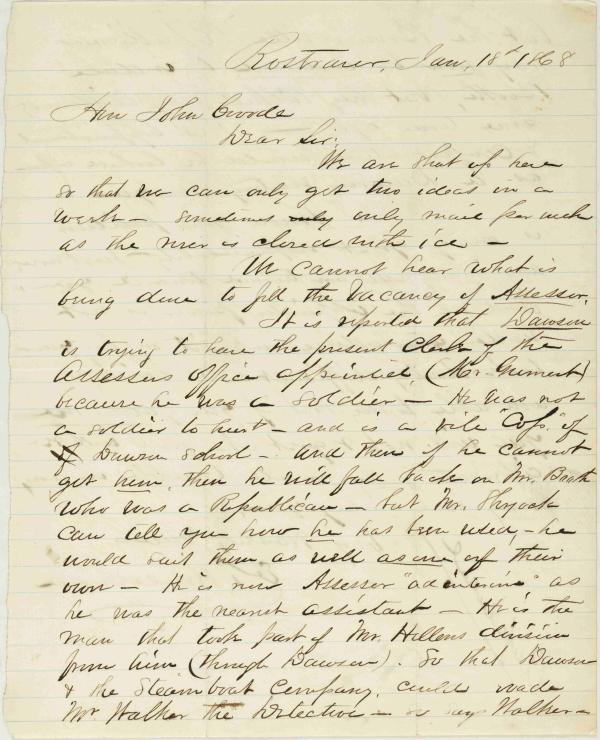 Rostraver, Jan, 18th 1868
Hon John Covode
Dear Sir:
We are shut up here
so that we can only get two ideas in a
week – sometimes only only mail per week
as the river is closed with ice –
We cannot hear what is
being done to fill the Vacancy of Assessor.
It is reported that Dawson
is trying to have the present Clerk of the
Assessers office appointed, (Mr.
because he was a soldier – He was not
a soldier to hurt – and is a vile "Cop." of
of Dawson school – And then if he cannot
get him, then he will fall back on Mr.
who was a Republican – but Mr. Shryock
can tell you how he has been used, – he
would suit them as well as one of their
own – He is now Assessor "ad interim" as
he was the nearest assistant – He is the
man that took part of Mr. Hellens division
from him (through Dawson). So that Dawson
& the Steamboat Company, could evade
Mr Walker the Detective – so says Walker –